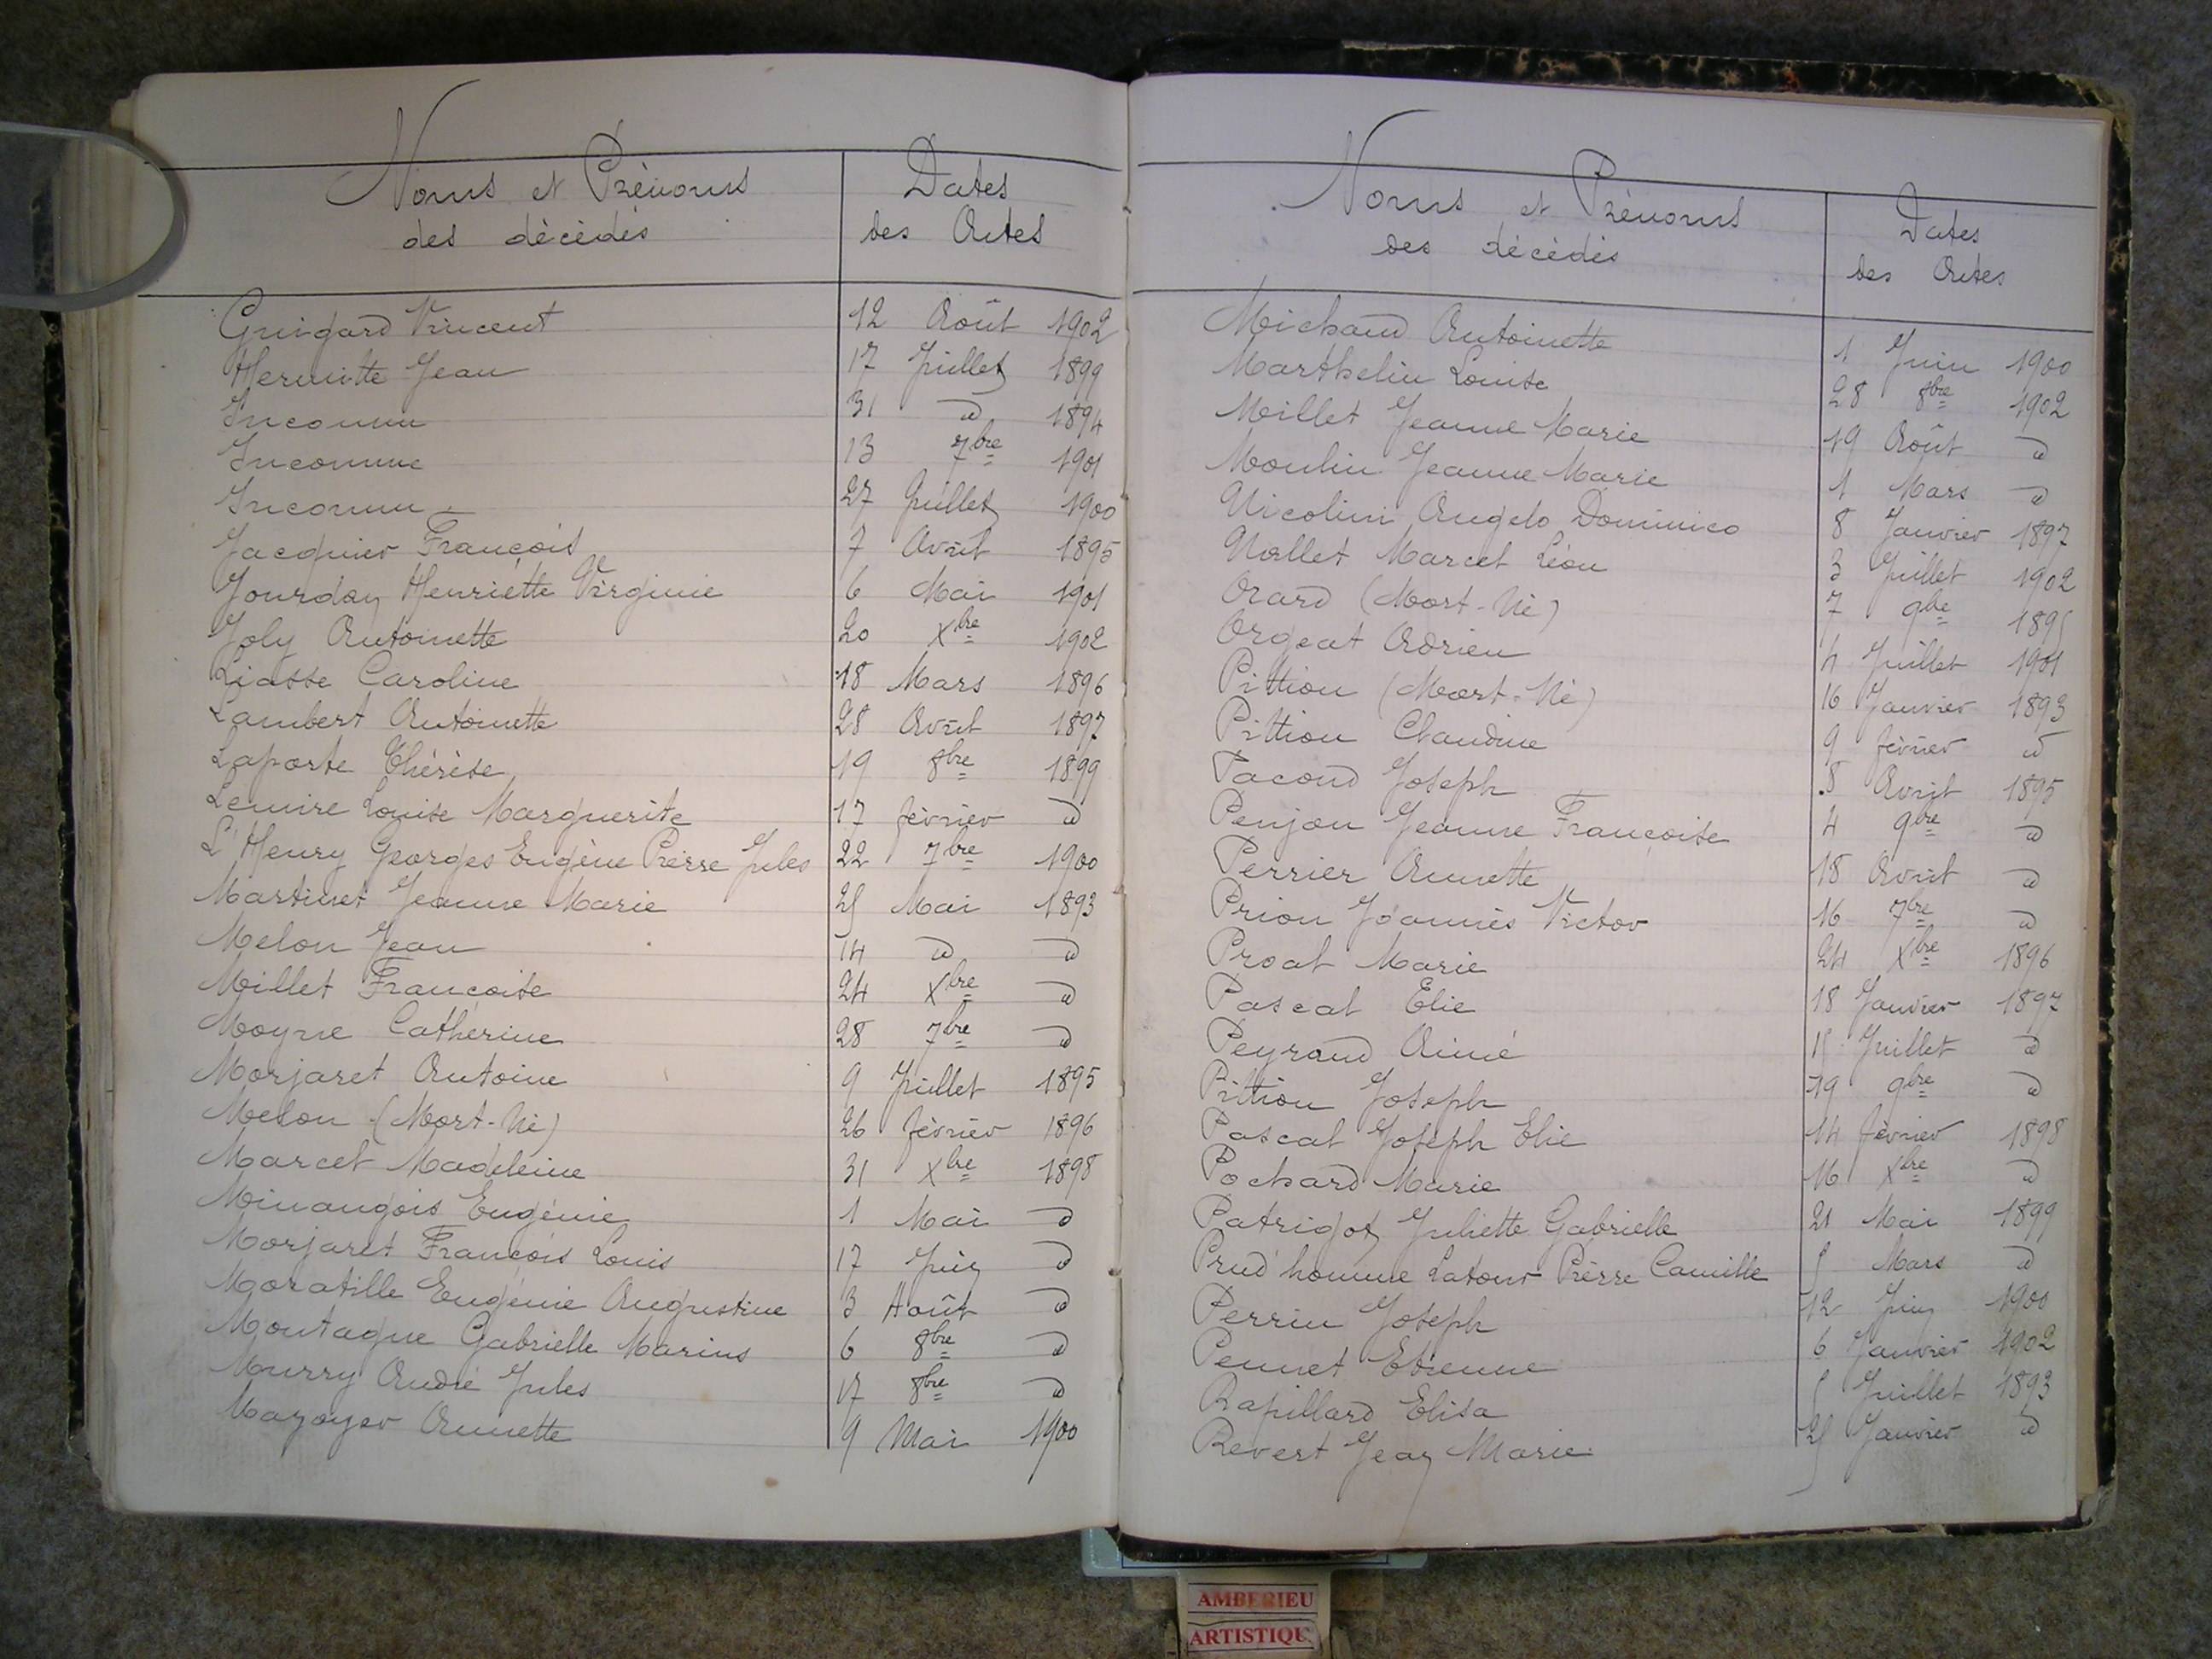 Noms et Prénoms
des décédés
Dates
des Actes
Guigard Vincent 12 Août 1902
Hermitte Jean 17 Juillet 1899
Inconnu 31 d 1894
Inconnue 13 7bre 1901
Inconnu 27 Juillet 1900
Jacquier François 7 Avril 1895
Jourdan Henriette Virginie 6 Mai 1901
Joly Antoinette 20 Xbre 1902
Liasse Caroline 18 Mars 1896
Lambert Antoinette 28 Avril 1897
Laporte Thérèse 19 8bre 1899
Lemire Louise Marguerite 17 février d
L'Henry Georges Eugène Pierre Jules 22 7bre 1900
Martinet Jeanne Marie 25 Mai 1893
Melon Jean 14 d d
Millet Françoise 24 Xbre d
Moyne Catherine 28 7bre d
Morjaret Antoine 9 Juillet 1895
Melon (Mort-Né) 26 février 1896
Marcel Madeleine 31 Xbre 1898
Minangois Eugénie 1 Mai d
Morjaret François Louis 17 Juin d
Moratille Eugénie Augustine 3 Août d
Montagne Gabrielle Marius 6 8bre d
Murry André Jules 17 8bre d
Mayoyer Annette 9 Mai 1900
Noms et Prénoms
des décédés
Dates
des Actes
Michaud Antoinette 1 Juin 1900
Marthelin Louise 28 8bre 1902
Millet Jeanne Marie 19 Août d
Moulin Jeanne Marie 1 Mars d
Nicolini Angelo Dominico 8 Janvier 1897
Nallet Marcel Léon 3 Juillet 1902
Orard (Mort-Né) 7 9bre 1895
Orgeat Adrien 4 Juillet 1901
Pittion (Mort-Né) 16 Janvier 1893
Pittion Claudine 9 février d
Pacoud Joseph 8 Avril 1895
Penjon Jeanne Françoise 4 9bre d
Perrier Annette 18 Avril d
Prion Joannès Victor 16 7bre d
Proal Marie 24 Xbre 1896
Pascal Elie 18 Janvier 1897
Peyraud Aimé 15 Juillet d
Pittion Joseph 19 9bre d
Pascal Joseph Elie 14 février 1898
Pochard Marie 16 Xbre d
Patrigot Juliette Gabrielle 21 Mai 1899
Prud'homme Latour Pierre Camille 5 Mars d
Perrin Joseph 12 Juin 1900
Pennet Etienne 6 Janvier 1902
Rapillard Elisa 5 Juillet 1893
Revert Jean Marie 25 Janvier d
AMBERIEU
ARTISTIQU